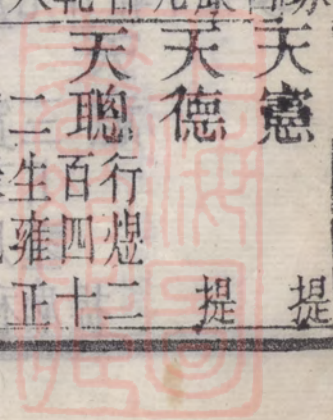 天憲 提
天德 提
天聰 行煜二
百四十
二生雍正